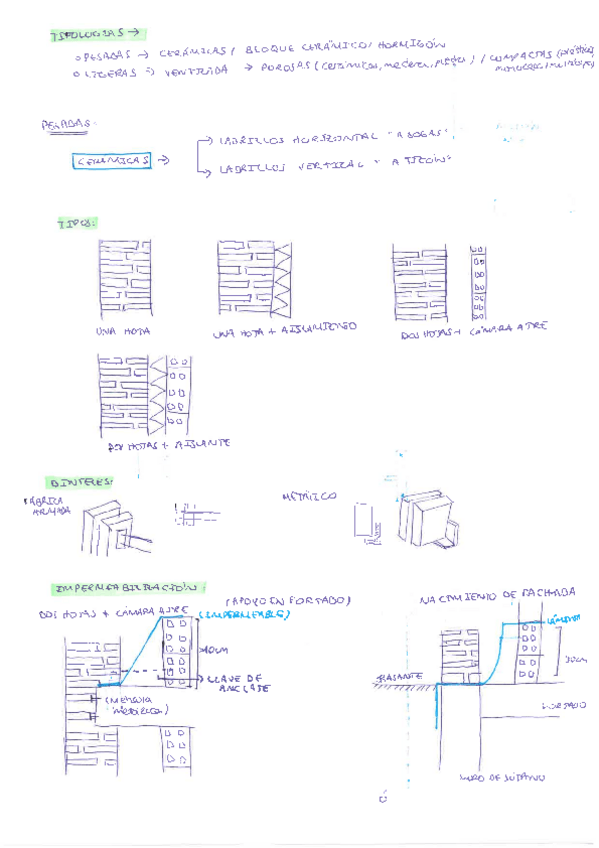 TIPOLOGIAS →
○ PESADAS → CERÁMICAS / BLOQUE CERÁMICO / HORMIGÓN
○ LIGERAS → VENTILADA → POROSAS (cerámicas, madera, ) / COMPACTAS (
PESADAS:
CERÁMICAS →
→ LADRILLOS HORIZONTAL "A SOGAS"
→ LADRILLOS VERTICAL "A TIZÓN"
TIPOS:
UNA HOJA
UNA HOJA + AISLAMIENTO
DOS HOJAS + CÁMARA AIRE
DOS HOJAS + AISLANTE
DINTELES:
FÁBRICA ARMADA
METÁLICO
IMPERMEABILIZACIÓN:
DOS HOJAS + CÁMARA AIRE
(APOYO EN FORJADO)
(IMPERMEABLE)
LLAVE DE ANCLAJE
(Ménsula metálica)
NACIMIENTO DE FACHADA
LÁMINA
RASANTE
30cm
FORJADO
MURO DE SÓTANO